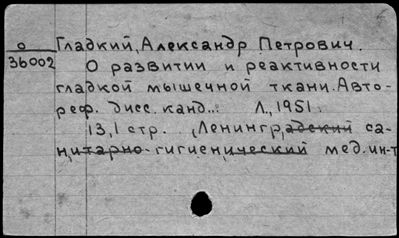 о Гладкий, Александр Петрович.
36002 О развитии и реактивности
гладкой мышечной ткани. Авто-
реф. дисс. канд... Л., 1951.
13,1 стр. (Ленинградский са-
нитарно-гигиенический мед. ин-т